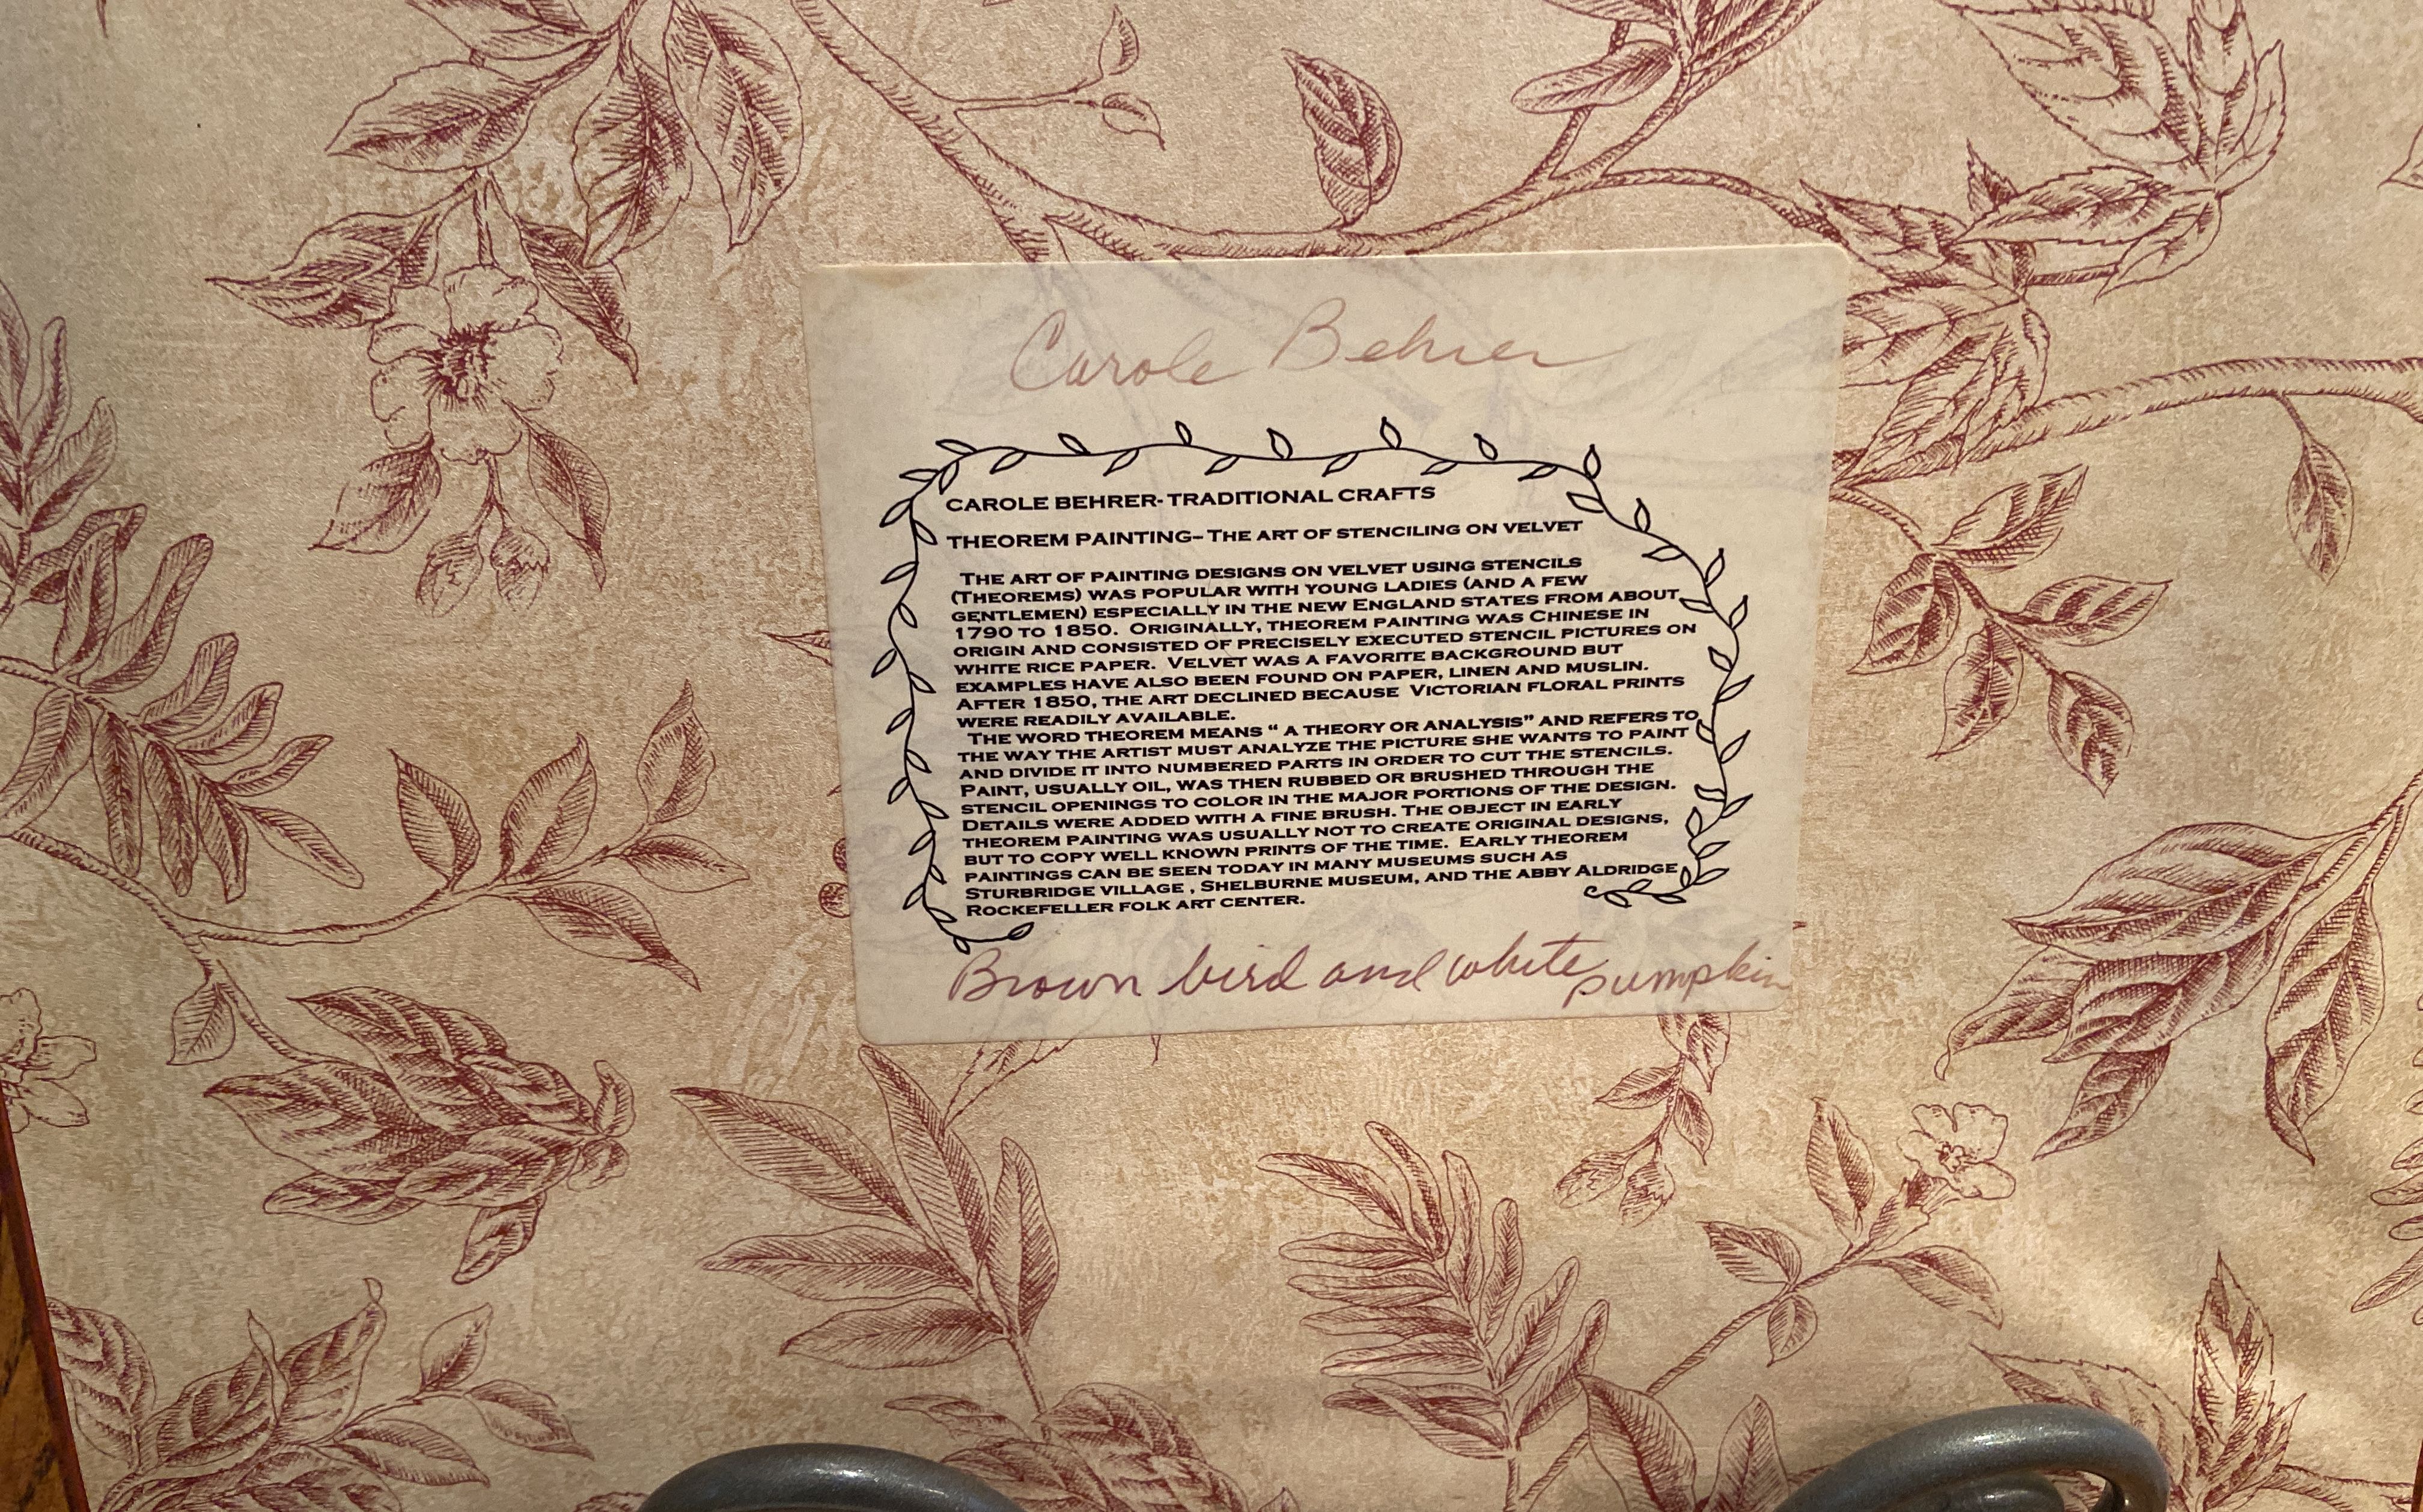 Carole Behrer
CAROLE BEHRER-TRADITIONAL CRAFTS
THEOREM PAINTING-THE ART OF STENCILING ON VELVET
THE ART OF PAINTING DESIGNS ON VELVET USING STENCILS
(THEOREMS) WAS POPULAR WITH YOUNG LADIES (AND A FEW
GENTLEMEN) ESPECIALLY IN THE NEW ENGLAND STATES FROM ABOUT
1790 TO 1850. ORIGINALLY, THEOREM PAINTING WAS CHINESE IN
ORIGIN AND CONSISTED OF PRECISELY EXECUTED STENCIL PICTURES ON
WHITE RICE PAPER. VELVET WAS A FAVORITE BACKGROUND BUT
EXAMPLES HAVE ALSO BEEN FOUND ON PAPER, LINEN AND MUSLIN.
AFTER 1850, THE ART DECLINED BECAUSE VICTORIAN FLORAL PRINTS
WERE READILY AVAILABLE.
THE WORD THEOREM MEANS “ A THEORY OR ANALYSIS” AND REFERS TO
THE WAY THE ARTIST MUST ANALYZE THE PICTURE SHE WANTS TO PAINT
AND DIVIDE IT INTO NUMBERED PARTS IN ORDER TO CUT THE STENCILS.
PAINT, USUALLY OIL, WAS THEN RUBBED OR BRUSHED THROUGH THE
STENCIL OPENINGS TO COLOR IN THE MAJOR PORTIONS OF THE DESIGN.
DETAILS WERE ADDED WITH A FINE BRUSH. THE OBJECT IN EARLY
THEOREM PAINTING WAS USUALLY NOT TO CREATE ORIGINAL DESIGNS,
BUT TO COPY WELL KNOWN PRINTS OF THE TIME. EARLY THEOREM
PAINTINGS CAN BE SEEN TODAY IN MANY MUSEUMS SUCH AS
STURBRIDGE VILLAGE , SHELBURNE MUSEUM, AND THE ABBY ALDRIDGE
ROCKEFELLER FOLK ART CENTER.
Brown bird and white pumpkin